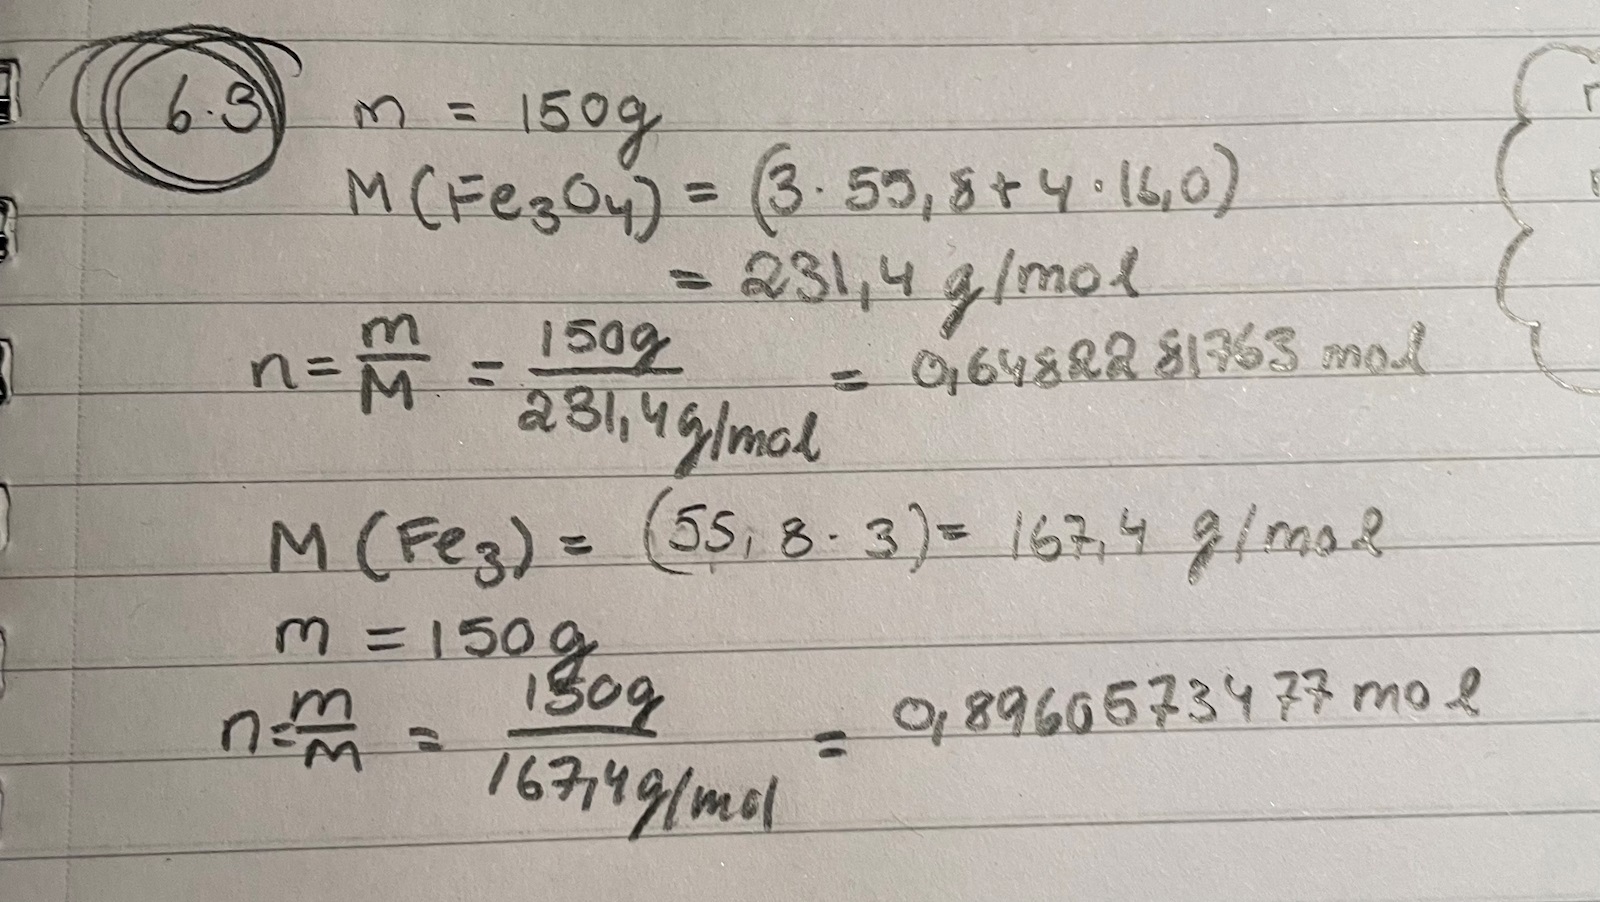 6.3 m = 150g
M(Fe₃O₄) = (3 · 55,8 + 4 · 16,0)
= 231,4 g/mol
n = m/M = 150g / 231,4 g/mol = 0,6482281763 mol
M(Fe₃) = (55,8 · 3) = 167,4 g/mol
m = 150g
n = m/M = 150g / 167,4 g/mol = 0,8960573477 mol